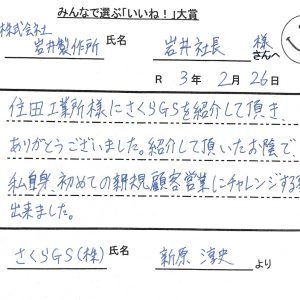 みんなで選ぶ「いいね！」大賞
株式会社
岩井製作所 氏名 岩井社長 様
さんへ
R 3年 2月 26日
住田工業所様にさくらGSを紹介して頂き
ありがとうございました。紹介して頂いたお陰で
私自身、初めての新規顧客営業にチャレンジする
出来ました。
さくらGS(株) 氏名 新原 淳史 より